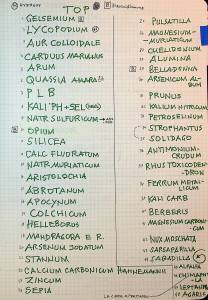 TOP
GELSEMIUM
LYCOPODIUM
AUR COLLOIDALE
CARDUUS MARIANUS
ARUM
QUASSIA AMARA
P L B
KALI PH + SEL
NATR. SULFURICUM
OPIUM
SILICEA
CALC FLUORATUM
NATR. MURIATICUM
ARISTOLOCHIA
ABROTANUM
APOCYNUM
COLCHICUM
HELLEBORUS
MANDRAGORA E R.
ARSENUM JODATUM
STANNUM
CALCIUM CARBONICUM HAHNEMANNI
ZINCUM
SEPIA
PULSATILLA
MAGNESIUM-
MURIATICUM
CHELIDONIUM
ALUMINA
BELLADONNA
ARSENICUM AL-
BUM
PRUNUS
KALIUM NITRICUM
PETROSELINUM
STROPHANTUS
SOLIDAGO
ANTIMONIUM-
CRUDUM
RHUS TOXICODEN-
DRON
FERRUM METAL-
LICUM
KALI CARB
BERBERIS
MAGNESIUM CARBONI-
CUM
NUX MOSCHATA
SARSAPARILLA
SABADILLA
CHIMAPHI-
LA
LEPTAN-
AGARIC